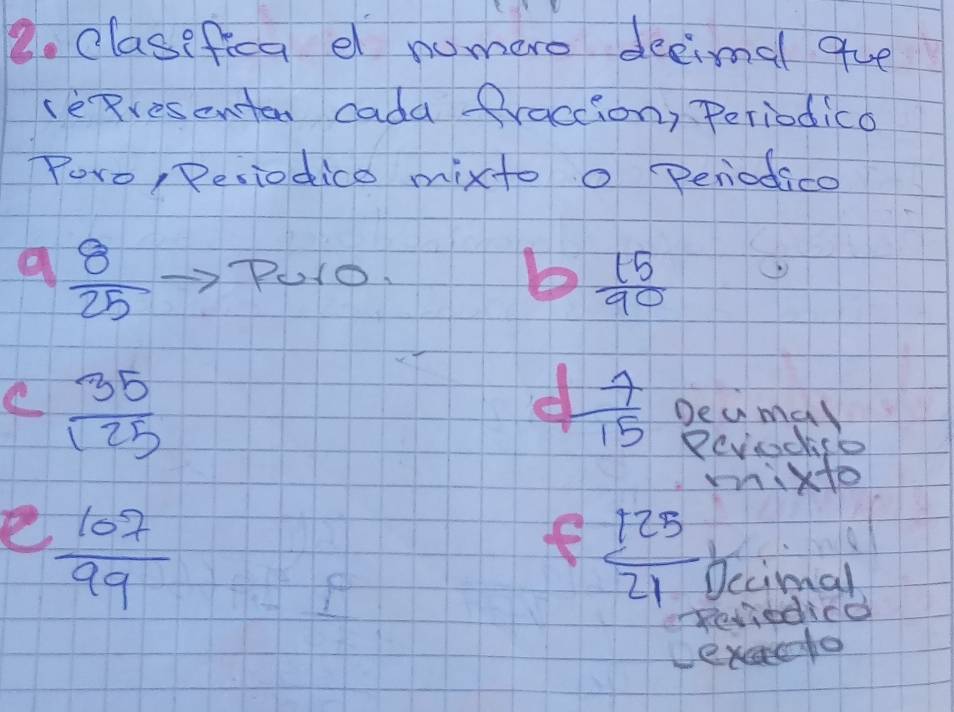 2. Clasifica el numero decimal que
representan cada fraccion, Periodico
Puro, Periodico mixto o Periodico
a 8/25 → Puro. b 15/90
c 35/125 d 7/15 Decimal
Periodico
mixto
e 107/99 f 125/21 Decimal
Periodico
exacto